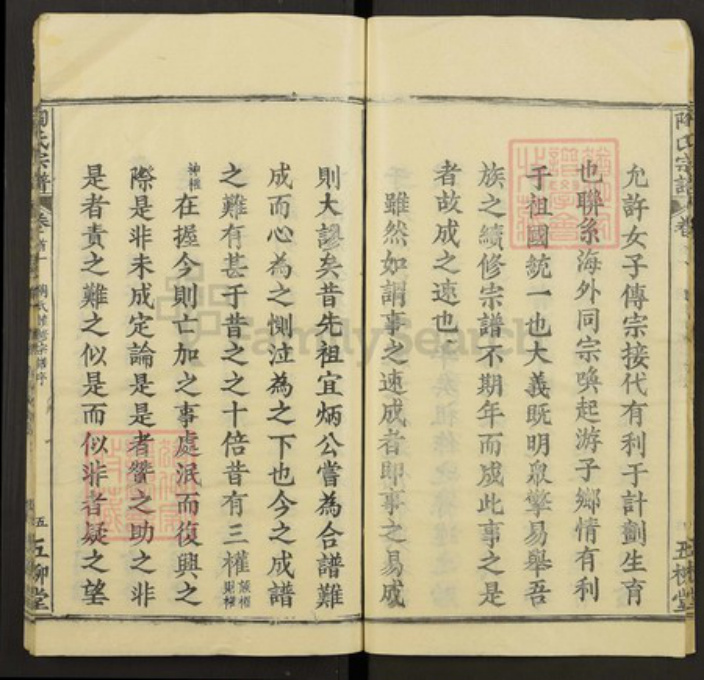 允許女子傳宗接代有利于計劃生育
也聯系海外同宗喚起游子鄉情有利
于祖國統一也大義既明眾擎易舉吾
族之續修宗譜不期年而成此事之是
者故成之速也
雖然如謂事之速成者即事之易成
則大謬矣昔先祖宜炳公嘗為合譜難
成而心為之惻泣為之下也今之成譜
之難有甚于昔之之十倍昔有三權族權
神權
在握今則亡加之事處泯而復興之
際是非未成定論是是者贊之助之非
是者責之難之似是而似非者疑之望
陶氏宗譜
卷首一
五
五柳堂
FamilySearch